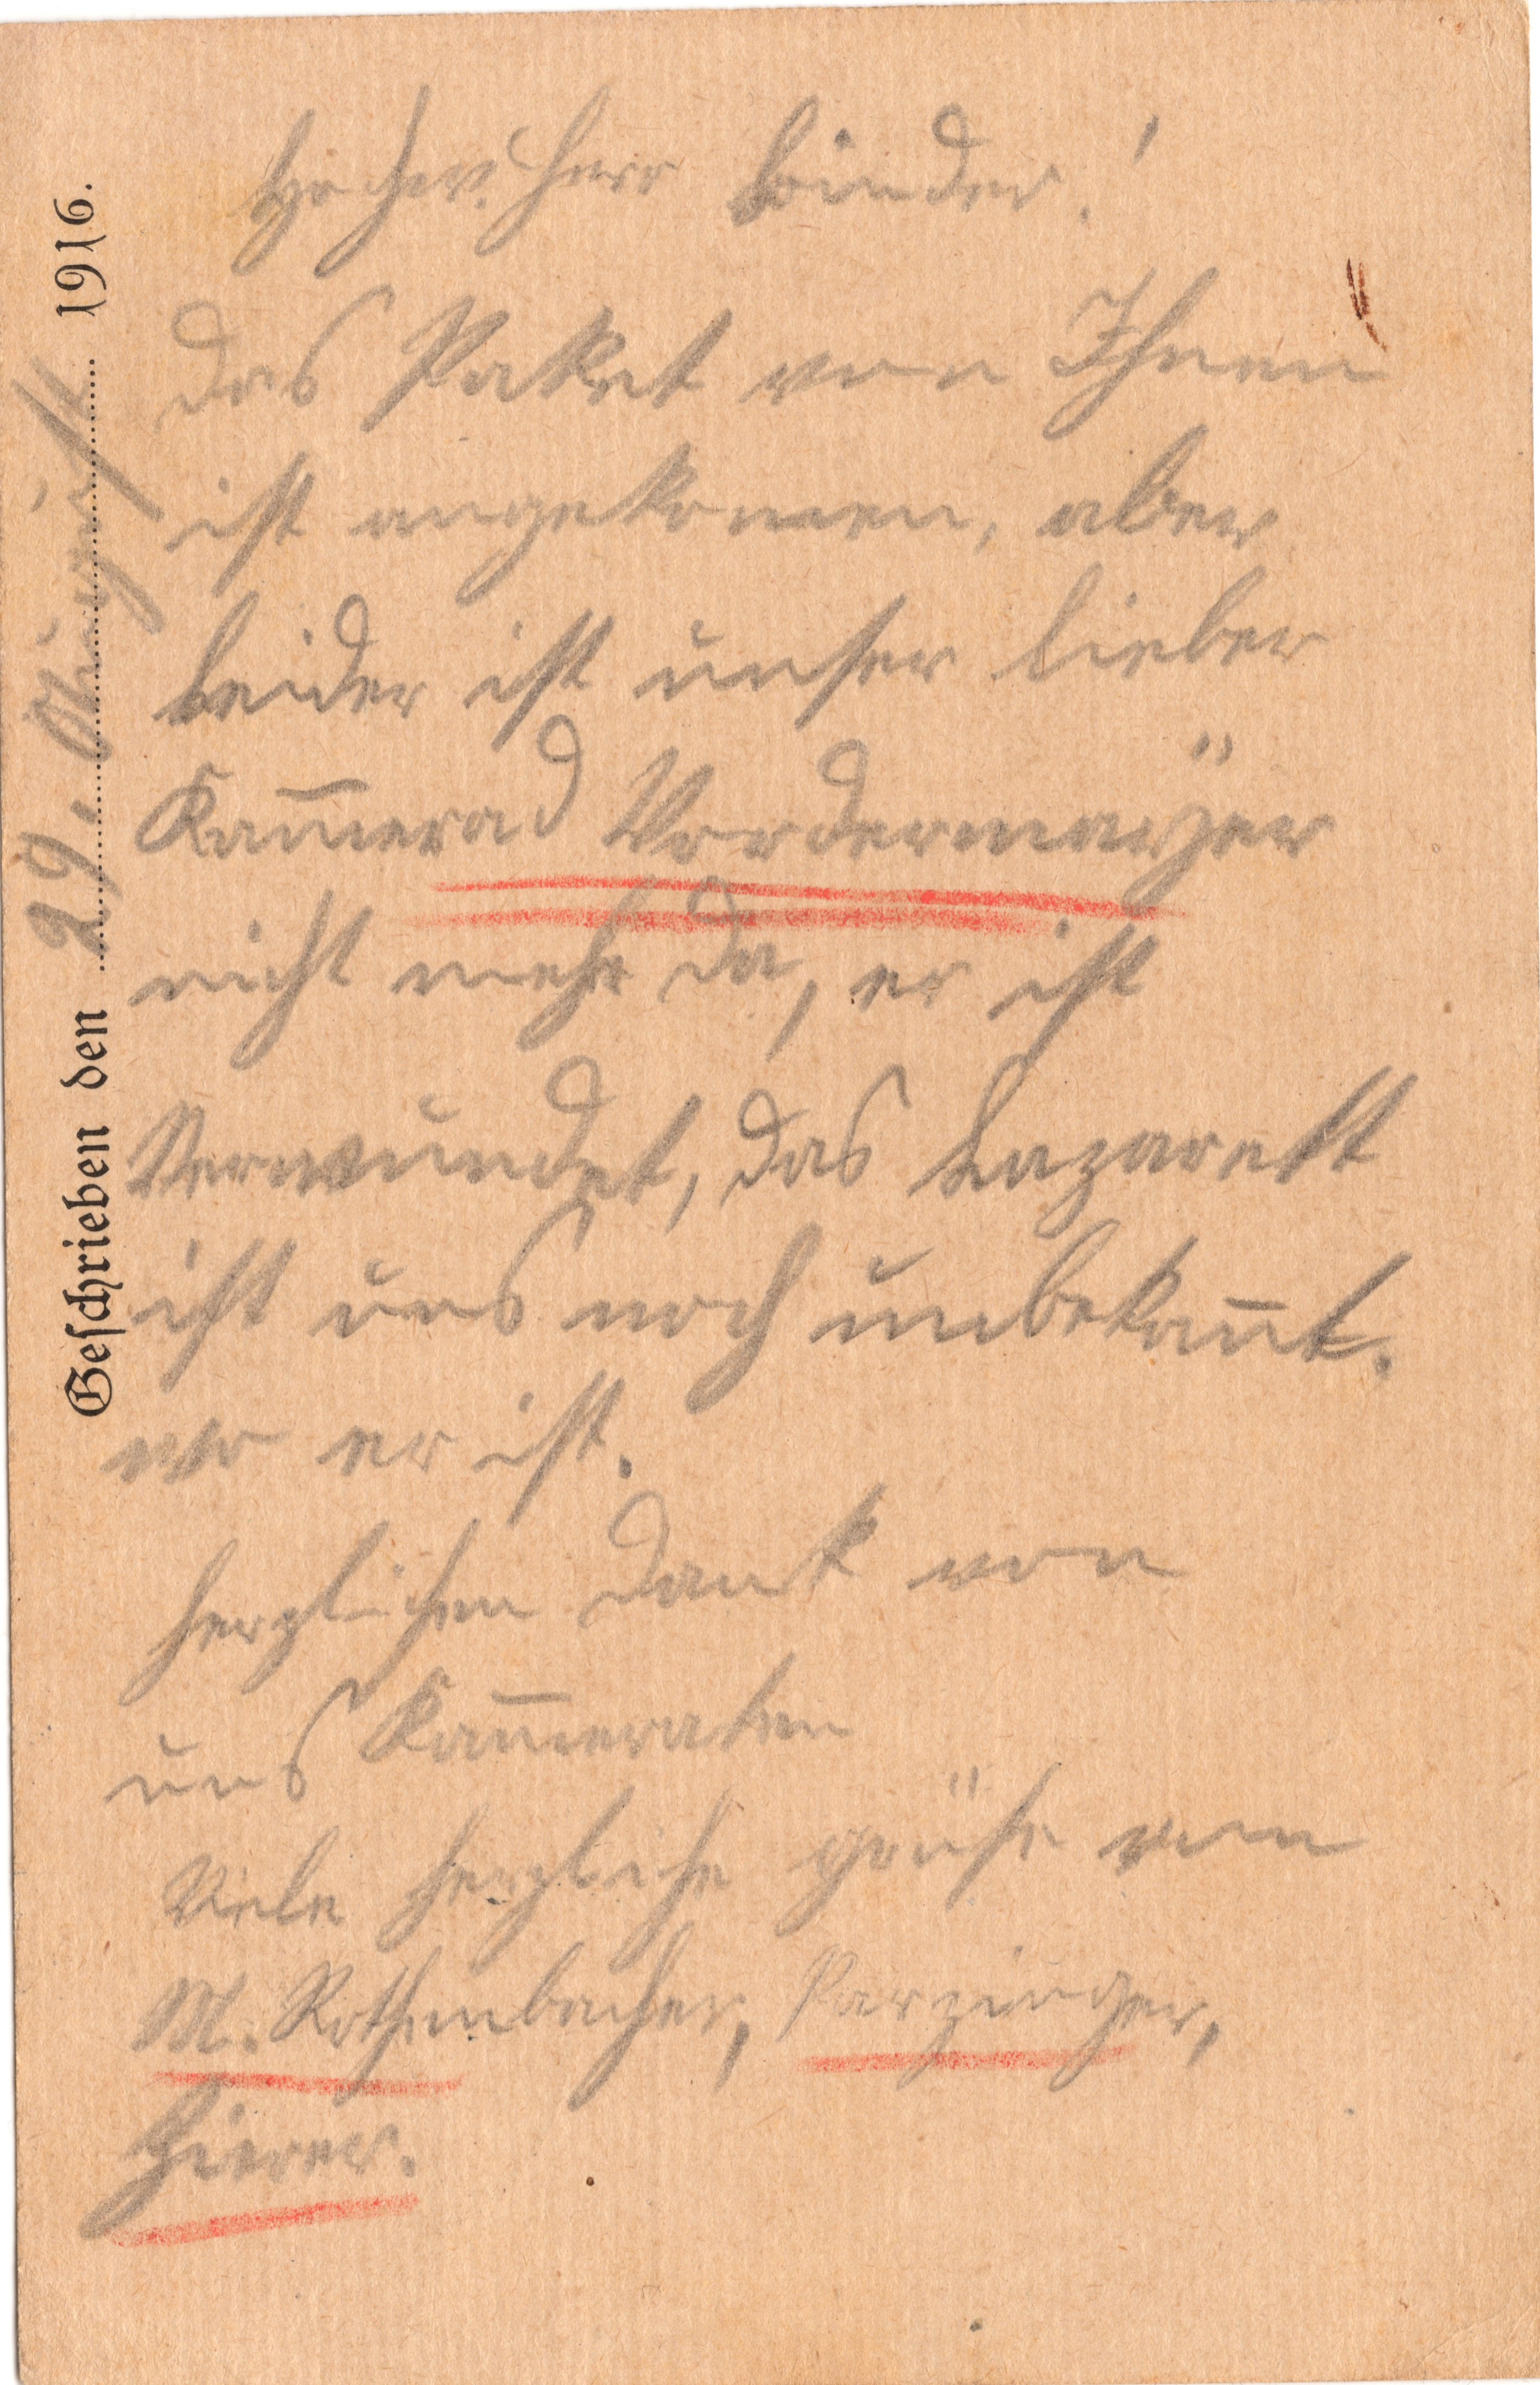 Geschrieben den 29. August 1916.
Hochw. Herr Binder!
Das Paket von Ihnen
ist angekomen, aber
leider ist unser lieber
Kam̅erad Vordermaÿer
nicht mehr da, er ist
Verwundet, das Lazarett
ist uns noch unbekan̅t.
wo er ist.
Herzlichen Dank von
uns Kam̅eraten
Viele herzliche grüße von
M. Rothenbacher, Parzinger,
Hierer.